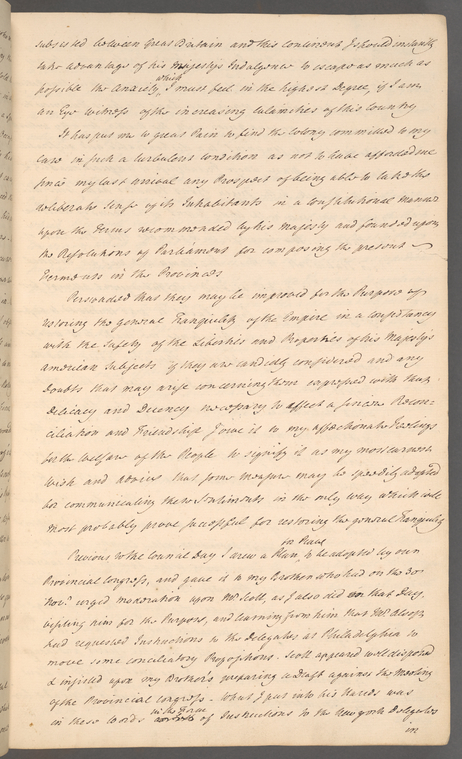 subsisted between Great Britain and this continent I should instantly
take advantage of his Majesty's Indulgence to escape as much as
possible the Anxiety, which I must feel in the highest Degree, if I am
an Eye Witness of the increasing calamities of this country
It has put me to great Pain to find the Colony committed to my
Care in such a turbulent condition as not to have afforded me
since my last arrival any Prospect of being able to take the
deliberate Sense of its Inhabitants in a constitutional manner
upon the Terms recommended by his Majesty and founded upon
the Resolutions of Parliament for composing the present
Ferments in the Provinces
Persuaded that they may be improved for the Purpose of
restoring the general Tranquility of the Empire in a consistency
with the Safety of the Liberties and Properties of his Majesty's
American Subjects if they are candidly considered and any
Doubts that may arise concerning them expressed with that
Delicacy and Decency necessary to effect a sincere Recon=
ciliation and Friendship I owe it to my affectionate
for the Welfare of the People to signify it as my most earnest
Wish and advice that some measure may be speedily adopted
for communicating these Sentiments in the only way which will
most probably prove successful for restoring the general Tranquility
Previous to the Council Day I drew a Plan, for Peace to be adopted by our
Provincial Congress, and gave it to my Brother who had on the 30
Nov.r urged moderation upon Mr Scott, as I also did on that Day,
visiting him for the Purpose, and learning from him that Mr Alsop
had requested Instructions to the delegates at Philadelphia to
move some conciliatory Propositions. Scott appeared well disposed
& insisted upon my Brother's preparing a Draft against the Meeting
of the Provincial Congress. What I put into his Hands was
in these Words in the Form of Instructions to the New York Delegates
in